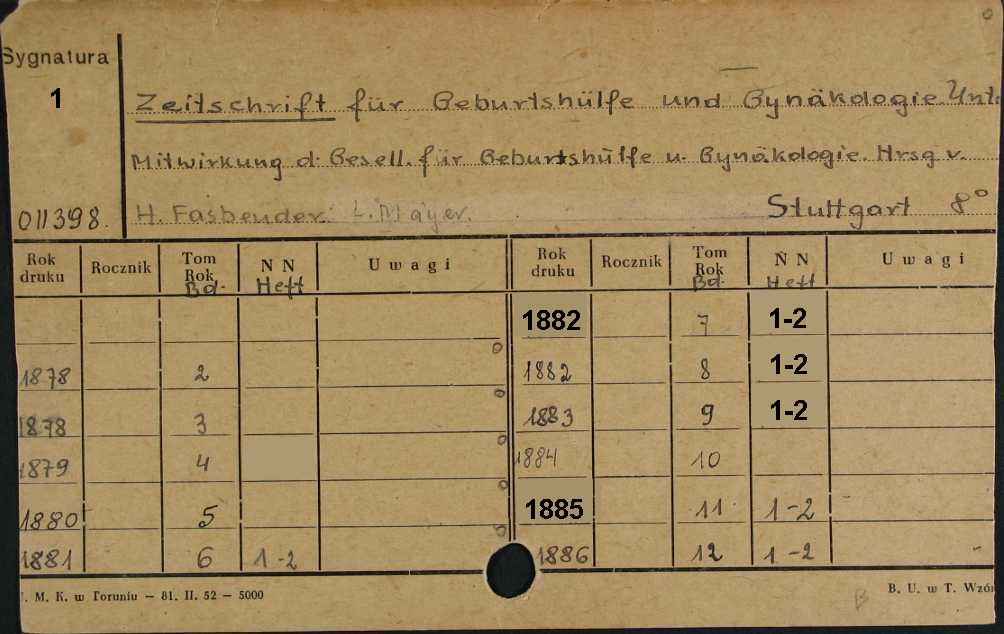 Sygnatura
1
Zeitschrift für Geburtshülfe und Gynäkologie Unt.
Mitwirkung d. Gesell. für Geburtshülfe u. Gynäkologie. Hrsg v.
011398. H. Fasbender. L. Mayer. Stuttgart 8°
Rok druku Rocznik Tom Rok Bd. NN Heft Uwagi Rok druku Rocznik Tom Rok Bd. NN Heft Uwagi
1882 7 1-2
1878 2 1882 8 1-2
1878 3 1883 9 1-2
1879 4 1884 10
1880 5 1885 11 1-2
1881 6 1-2 1886 12 1-2
. M. K. w Toruniu — 81. II. 52 — 5000 B. U. w T. Wzór
B